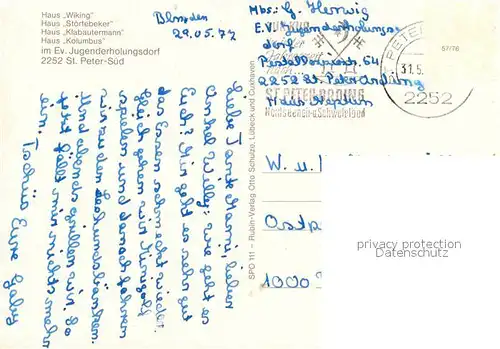 Haus „Wiking"
Haus „Störtebeker"
Haus „Klabautermann"
Haus „Kolumbus"
im Ev. Jugenderholungsdorf
2252 St. Peter-Süd
29.05.77
Liebe Tante Mami, lieber
Onkel Willy! Wie geht es
Euch? Mir geht es sehr gut
das Essen schmeckt wieder.
Gleich gehen wir Minigolf
spielen und danach fahren
wir zu den
Und abends grillen wir. So
jetzt fällt mir nichts mehr
ein. Tschüs Eure Gaby
SPO 111 — Rubin-Verlag Otto Schulze, Lübeck und Cuxhaven
Abs.: G. Herwig
E.V. Jugenderholungs
dorf
Pestalozzistr. 64
2252 St. Peter Ording
Haus
ST. PETER-ORDING
Nordseeheil- u. Schwefelbad
ST. PETER
31.5.
2252
57/76
W. u.
Ostp
1000
privacy protection
Datenschutz